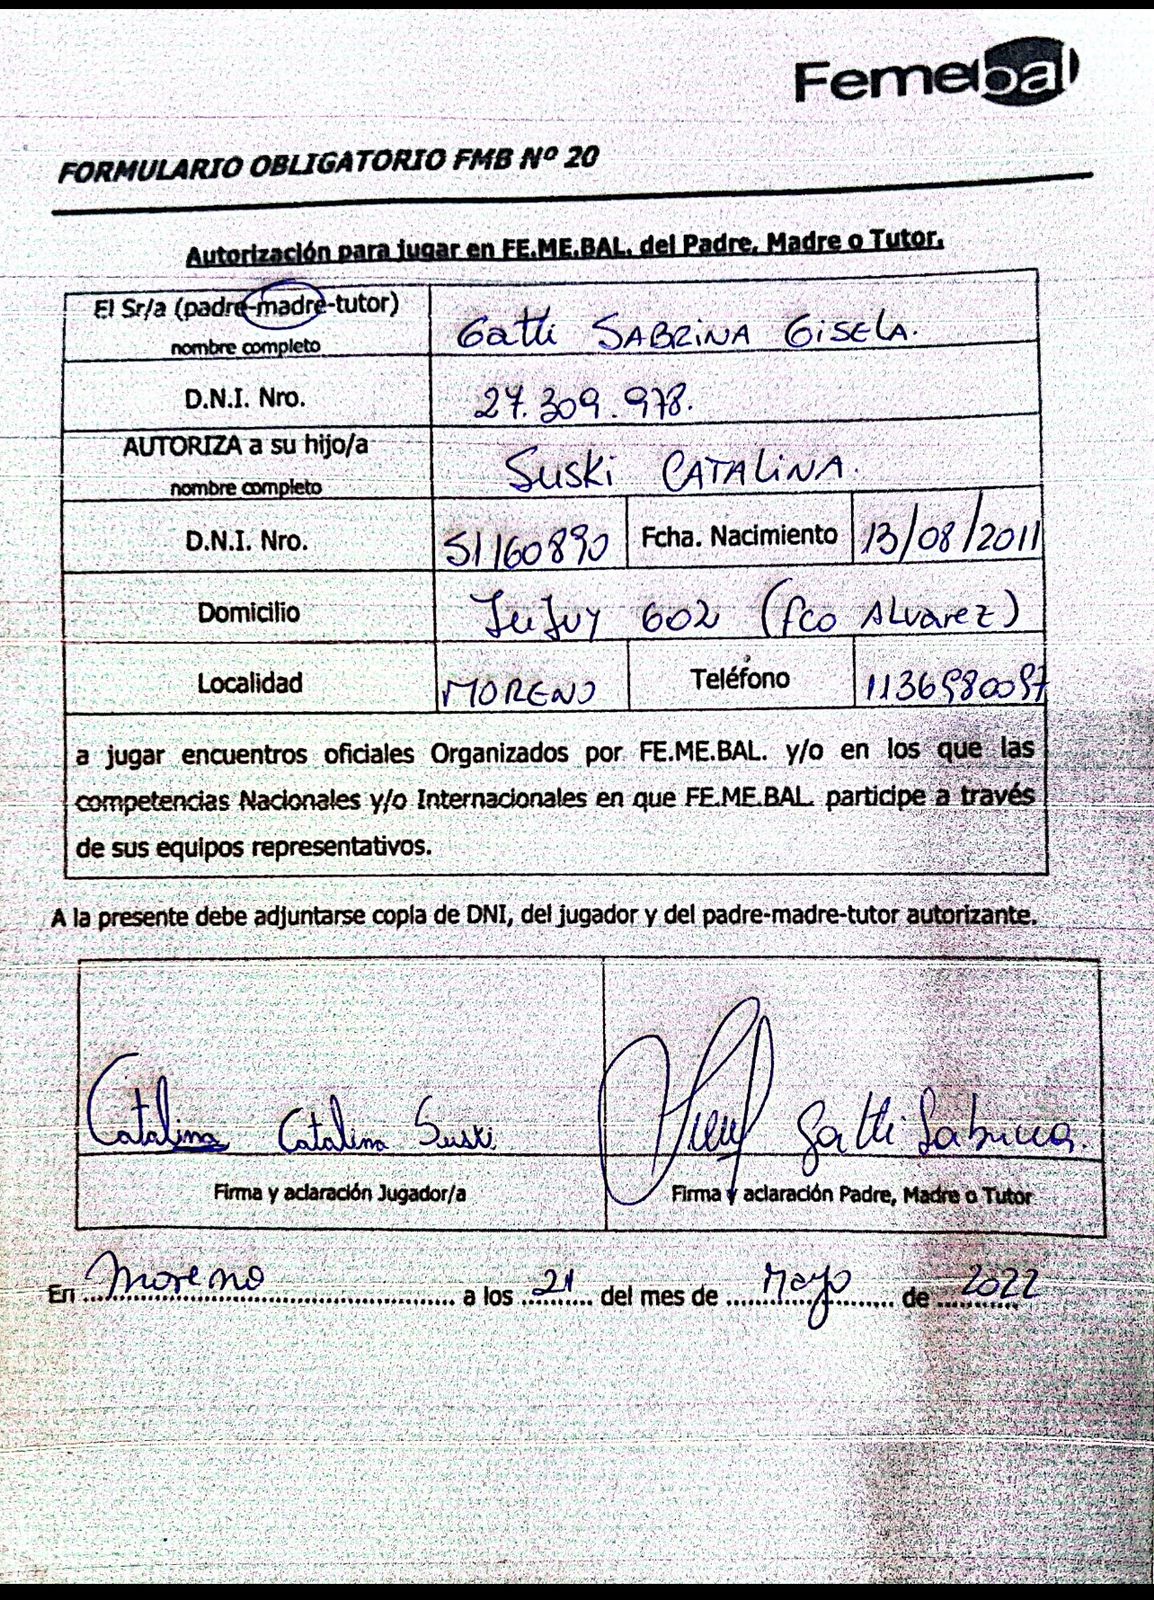 Femebal
FORMULARIO OBLIGATORIO FMB Nº 20
Autorización para jugar en FE.ME.BAL. del Padre, Madre o Tutor.
El Sr/a (padre-madre-tutor)
nombre completo
Gatti SABRINA GISELA.
D.N.I. Nro.
27.309.978.
AUTORIZA a su hijo/a
nombre completo
Suski CATALINA.
D.N.I. Nro.
51160890
Fcha. Nacimiento
13/08/2011
Domicilio
JuJuy 602 (fco ALvarez)
Localidad
MORENO
Teléfono
a jugar encuentros oficiales Organizados por FE.ME.BAL. y/o en los que las
competencias Nacionales y/o Internacionales en que FE.ME.BAL. participe a través
de sus equipos representativos.
A la presente debe adjuntarse copia de DNI, del jugador y del padre-madre-tutor autorizante.
Catalina Catalina Suski
Gatti Sabrina.
Firma y aclaración Jugador/a
Firma y aclaración Padre, Madre o Tutor
En Moreno a los 21 del mes de Mayo de 2022